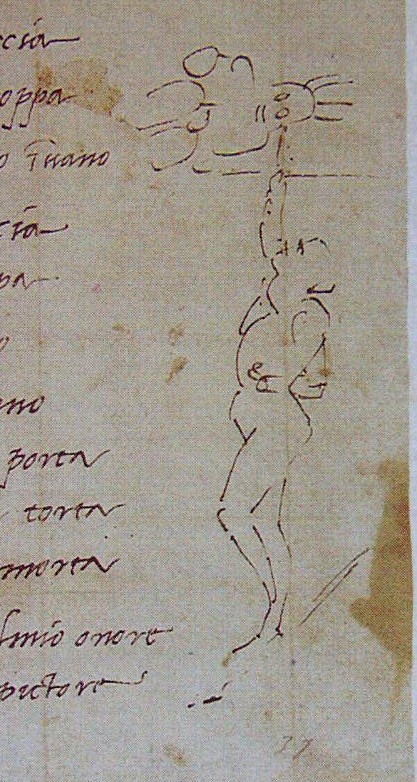 ccia
oppa
o īvano
ccia
pa
o
ano
porta
torta
morta
lmio onore
pictore